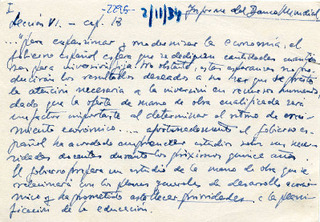 I
2/11/34 Informe del Banco Mundial
Lección VI. - cap. 18
..."Para expansionar y modernizar la economía, el
Gobierno español espera que se dediquen cantidades cuantio-
sas para inversión fija. No obstante, estas inversiones no pro-
ducirán los resultados deseados a no ser que se preste
la atención necesaria a la inversión en recursos humanos,
dado que la oferta de mano de obra cualificada será
un factor importante al determinar el ritmo de creci-
miento económico.... afortunadamente el Gobierno es-
pañol ha acordado emprender estudios sobre sus nece-
sidades docentes durante los próximos quince años.
El Gobierno prepara un estudio de la mano de obra que se
relacionará con los planes generales de desarrollo econó-
mico y ha prometido establecer prioridades a la plani-
ficación de la educación.